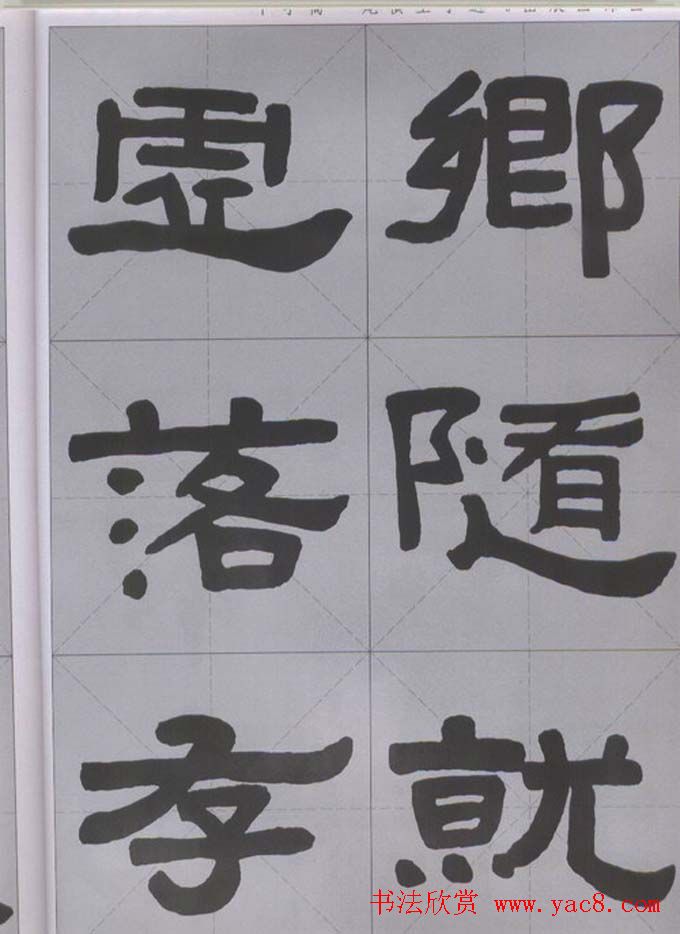 鄉隨就
虛落存
书法欣赏 www.yac8.com